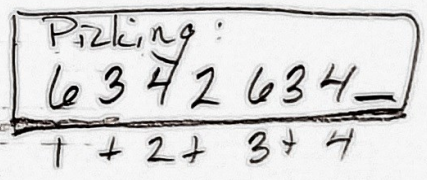 Pizking:
6 3 4 2 6 3 4 _
1 + 2 + 3 + 4